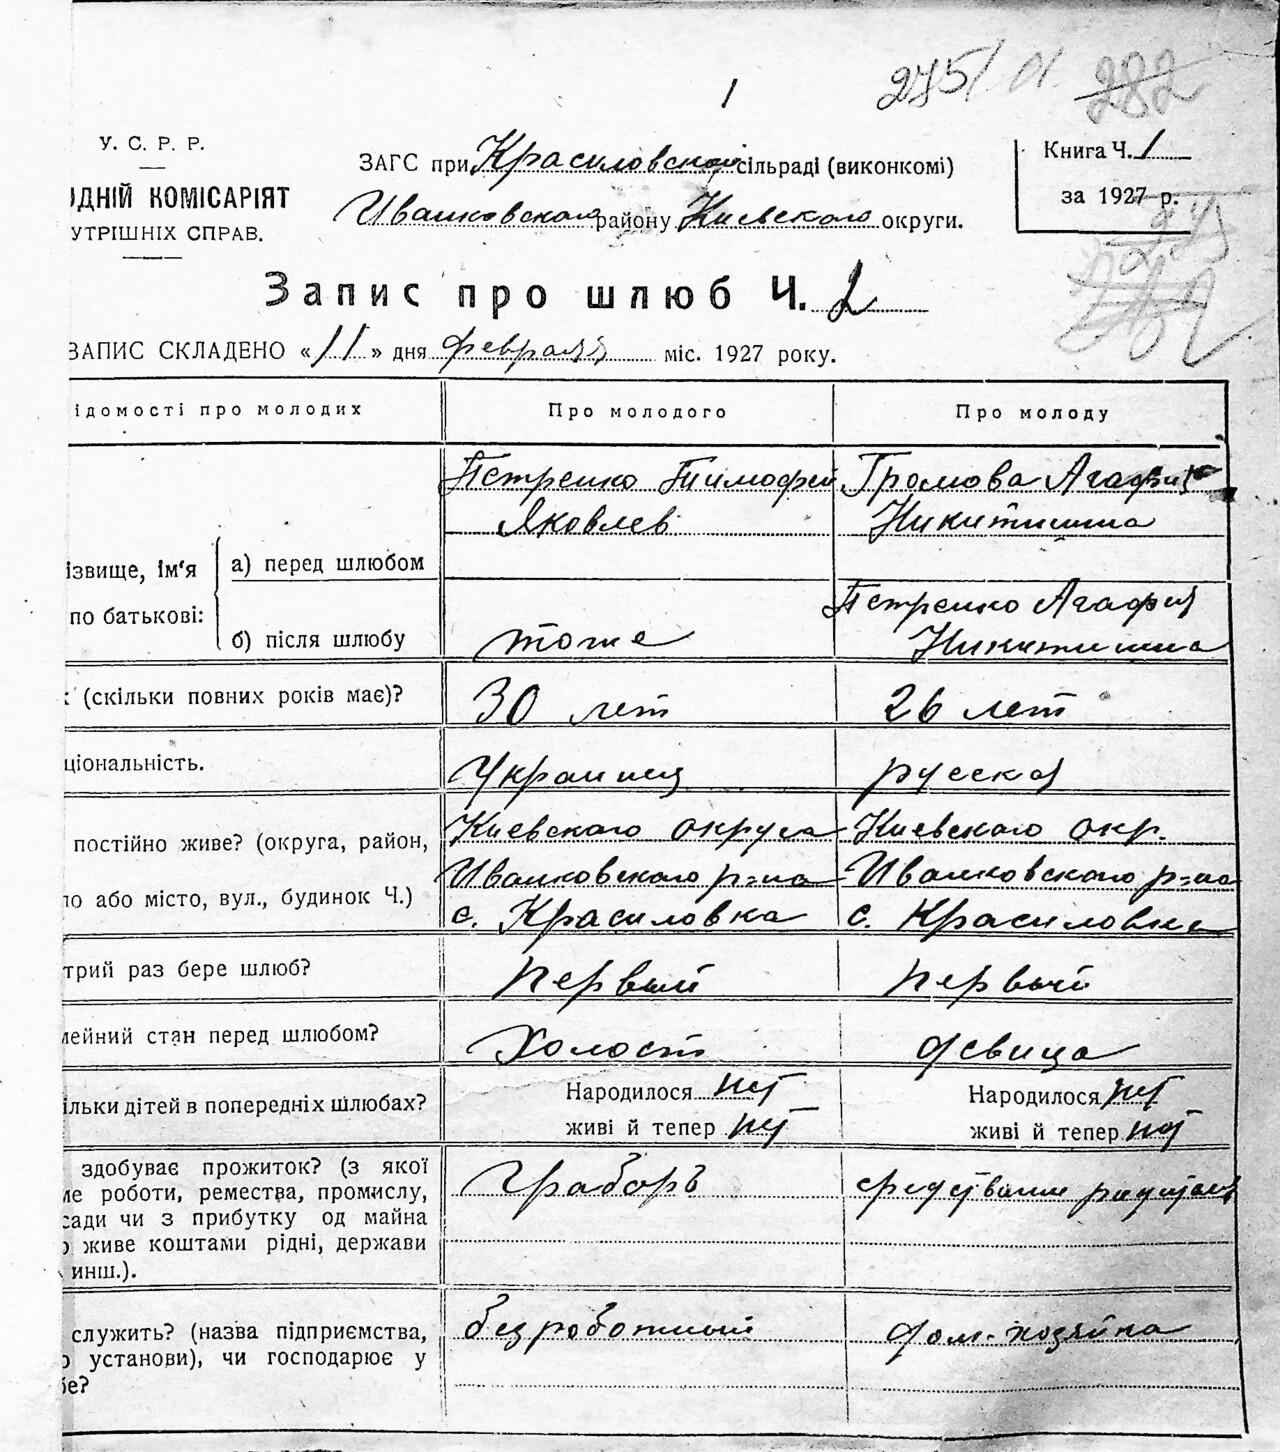 1
275/ 01. 282
У. С. Р. Р.
ОДНІЙ КОМІСАРІЯТ
УТРІШНІХ СПРАВ.
ЗАГС при Красиловской сільраді (виконкомі)
Иванковского району Киевского округи.
Книга Ч. 1
за 1927 р.
Запис про шлюб Ч. 2
ЗАПИС СКЛАДЕНО «11» дня февраля міс. 1927 року.
ідомості про молодих Про молодого Про молоду
Петренко Тимофей Громова Агафия
Яковлев Никитишна
ізвище, ім'я а) перед шлюбом
по батькові: б) після шлюбу
тоже Петренко Агафия
Никитишна
(скільки повних років має)? 30 лет 26 лет
ціональність. Украинец русская
постійно живе? (округа, район, Киевского округа Киевского окр.
ло або місто, вул., будинок Ч.) Иванковского р-на Иванковского р-на
с. Красиловка с. Красиловка
трий раз бере шлюб? первый первый
мейний стан перед шлюбом? Холост девица
ільки дітей в попередніх шлюбах? Народилося нет Народилося нет
живі й тепер нет живі й тепер нет
здобуває прожиток? (з якої Граборъ средствами родителей
ме роботи, ремества, промислу,
сади чи з прибутку од майна
о живе коштами рідні, держави
инш.).
служить? (назва підприємства, безработный дом-хозяйка
о установи), чи господарює у
бе?